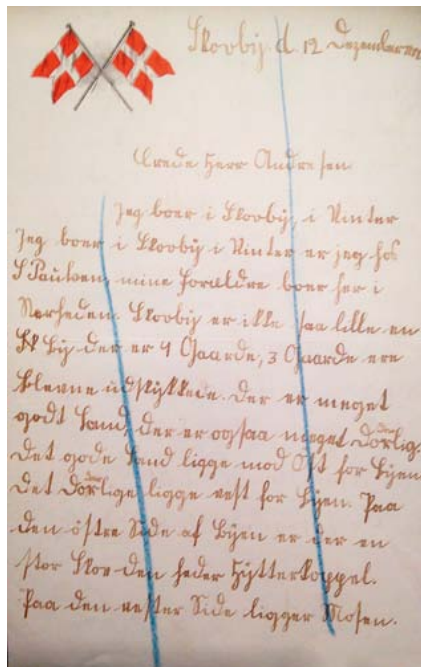 Skovby d. 12 Dezember
Ærede Herr Andresen
Jeg boer i Skovby, i Vinter
Jeg boer i Skovby i Vinter er jeg hos
S Paulsen, mine Forældre boer her i
Nærheden. Skovby er ikke saa lille en
By der er 9 Gaarde, 3 Gaarde ere
blevne udstykkede. Der er meget
godt Land, der er ogsaa meget Dörlig.
Det gode Land ligge mod Öst for Byen
Det Dörlige ligge vest for Byen. Paa
den östre Side af Byen er der en
stor Skov den heder Hytterkoppel.
Paa den vester Side ligger Mosen.